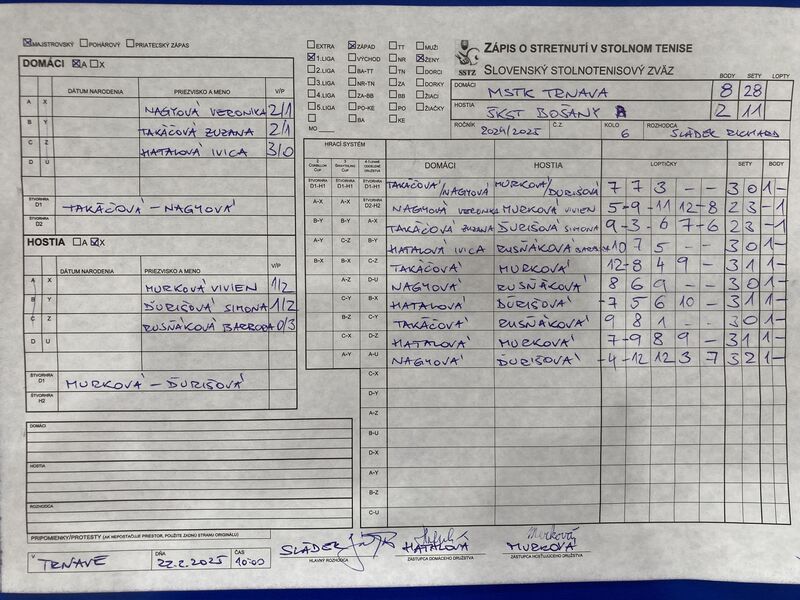 ☒ MAJSTROVSKÝ ☐ POHÁROVÝ ☐ PRIATEĽSKÝ ZÁPAS
DOMÁCI ☒A ☐X
DÁTUM NARODENIA PRIEZVISKO A MENO V/P
A X NAGYOVÁ VERONIKA 2/1
B Y TAKÁČOVÁ ZUZANA 2/1
C Z HATALOVÁ IVICA 3/0
D U
ŠTVORHRA D1 TAKÁČOVÁ - NAGYOVÁ
ŠTVORHRA D2
HOSTIA ☐A ☒X
DÁTUM NARODENIA PRIEZVISKO A MENO V/P
A X MURKOVÁ VIVIEN 1/2
B Y ĎURIŠOVÁ SIMONA 1/2
C Z RUSŇÁKOVÁ BARBORA 0/3
D U
ŠTVORHRA D1 MURKOVÁ - ĎURIŠOVÁ
ŠTVORHRA H2
DOMÁCI
HOSTIA
ROZHODCA
PRIPOMIENKY/PROTESTY (AK NEPOSTAČUJE PRIESTOR, POUŽITE ZADNÚ STRANU ORIGINÁLU)
V TRNAVE DŇA 22.2.2025 ČAS 10:00
☐ EXTRA ☒ ZÁPAD ☐ TT ☐ MUŽI
☒ 1.LIGA ☐ VÝCHOD ☐ NR ☒ ŽENY
☐ 2.LIGA ☐ BA-TT ☐ TN ☐ DORCI
☐ 3.LIGA ☐ NR-TN ☐ ZA ☐ DORKY
☐ 4.LIGA ☐ ZA-BB ☐ BB ☐ ŽIACI
☐ 5.LIGA ☐ PO-KE ☐ PO ☐ ŽIAČKY
☐ ☐ BA ☐ KE
MO
SSTZ
ZÁPIS O STRETNUTÍ V STOLNOM TENISE
SLOVENSKÝ STOLNOTENISOVÝ ZVÄZ
BODY SETY LOPTY
DOMÁCI MSTK TRNAVA 8 28
HOSTIA ŠKST BOŠANY A 2 11
ROČNÍK 2024/2025 Č.Z. KOLO 6 ROZHODCA SLÁDEK RICHARD
HRACÍ SYSTÉM
2 CORBILLON CUP 3 SWAYTHLING CUP 4 ČLENNÉ ODDELENÉ DRUŽSTVÁ DOMÁCI HOSTIA LOPTIČKY SETY BODY
ŠTVORHRA D1-H1 ŠTVORHRA D1-H1 ŠTVORHRA D1-H1 TAKÁČOVÁ/NAGYOVÁ MURKOVÁ/ĎURIŠOVÁ 7 7 3 - - 3 0 1 -
A-X A-X ŠTVORHRA D2-H2 NAGYOVÁ VERONIKA MURKOVÁ VIVIEN 5 -9 -11 12 -8 2 3 - 1
B-Y B-Y A-X TAKÁČOVÁ ZUZANA ĎURIŠOVÁ SIMONA 9 -3 -6 7 -6 2 3 - 1
A-Y C-Z B-Y HATALOVÁ IVICA RUSŇÁKOVÁ BARBORA 10 7 5 - - 3 0 1 -
B-X B-X C-Z TAKÁČOVÁ MURKOVÁ 12 -8 4 9 - 3 1 1 -
A-Z D-U NAGYOVÁ RUSŇÁKOVÁ 8 6 9 - - 3 0 1 -
C-Y B-X HATALOVÁ ĎURIŠOVÁ -7 5 6 10 - 3 1 1 -
B-Z C-Y TAKÁČOVÁ RUSŇÁKOVÁ 9 8 1 - - 3 0 1 -
C-X D-Z HATALOVÁ MURKOVÁ 7 -9 8 9 - 3 1 1 -
A-Y A-U NAGYOVÁ ĎURIŠOVÁ -4 -12 12 3 7 3 2 1 -
C-X
D-Y
A-Z
B-U
D-X
A-Y
B-Z
C-U
SLÁDEK HATALOVÁ Murková MURKOVÁ
HLAVNÝ ROZHODCA ZÁSTUPCA DOMÁCEHO DRUŽSTVA ZÁSTUPCA HOSŤUJÚCEHO DRUŽSTVA